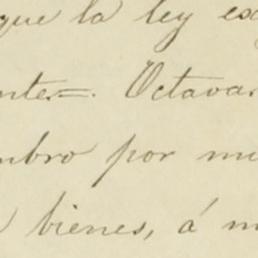 que la ley ex
nte.=. Octava.
mbro por mi
bienes, á m